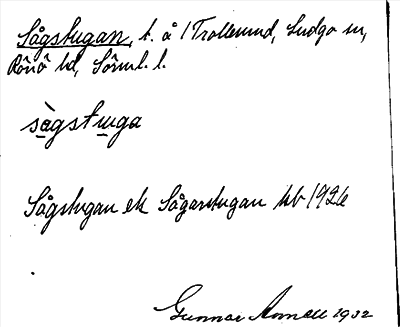 Sågstugan, t. å 1 Trollesund, Ludgo sn,
Rönö hd, Sörml. l.
sågstuga
Sågstugan ek Sågarstugan kb 1926
Gunnar 1932